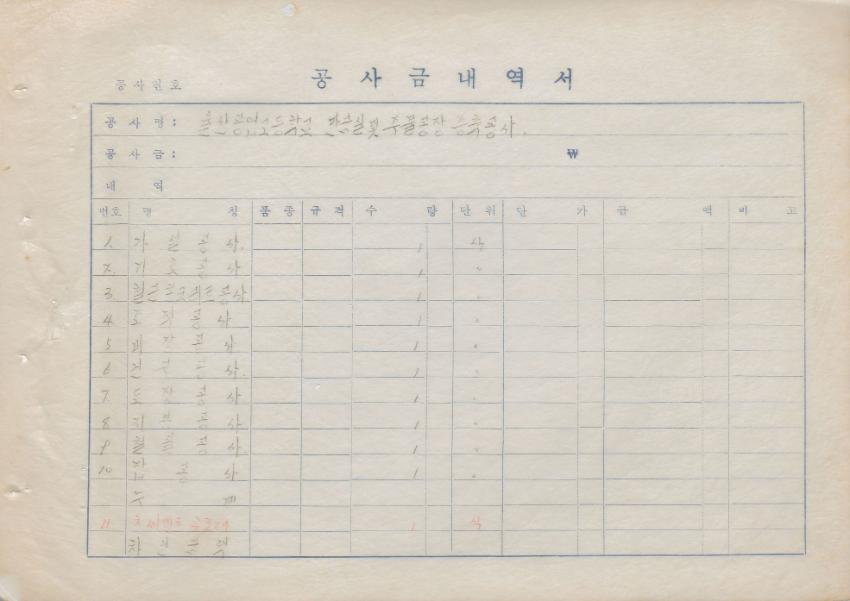 공사번호
공사금내역서
공사명: 울산공업고등학교 판금실및 주물공장 증축공사.
공사금: ₩
내역
번호 명칭 품종 규격 수량 단위 단가 금액 비고
1. 가설공사. 1 식
2. 기초공사 1 〃
3 철근콘크리트공사 1 〃
4 조적공사 1 〃
5 미장공사 1 〃
6 공사. 1 〃
7. 도장공사 1 〃
8 지붕공사 1 〃
9 철물공사. 1 〃
10 잡공사 1 〃
계
11 1 식